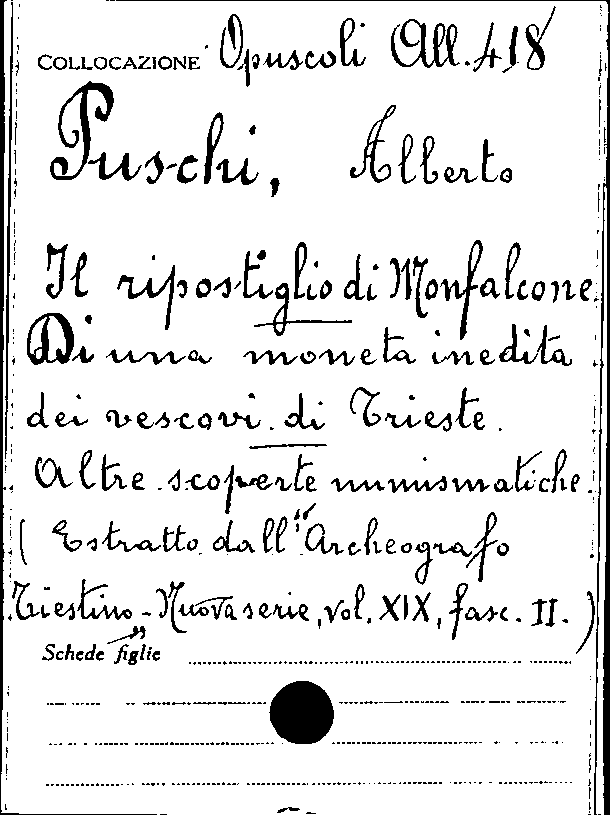 COLLOCAZIONE Opuscoli All. 418
Puschi, Alberto
Il ripostiglio di Monfalcone.
Di una moneta inedita
dei vescovi di Trieste.
Altre scoperte numismatiche.
(Estratto dall'"Archeografo
Triestino" - Nuova serie, vol. XIX, fasc. II.)
Schede figlie